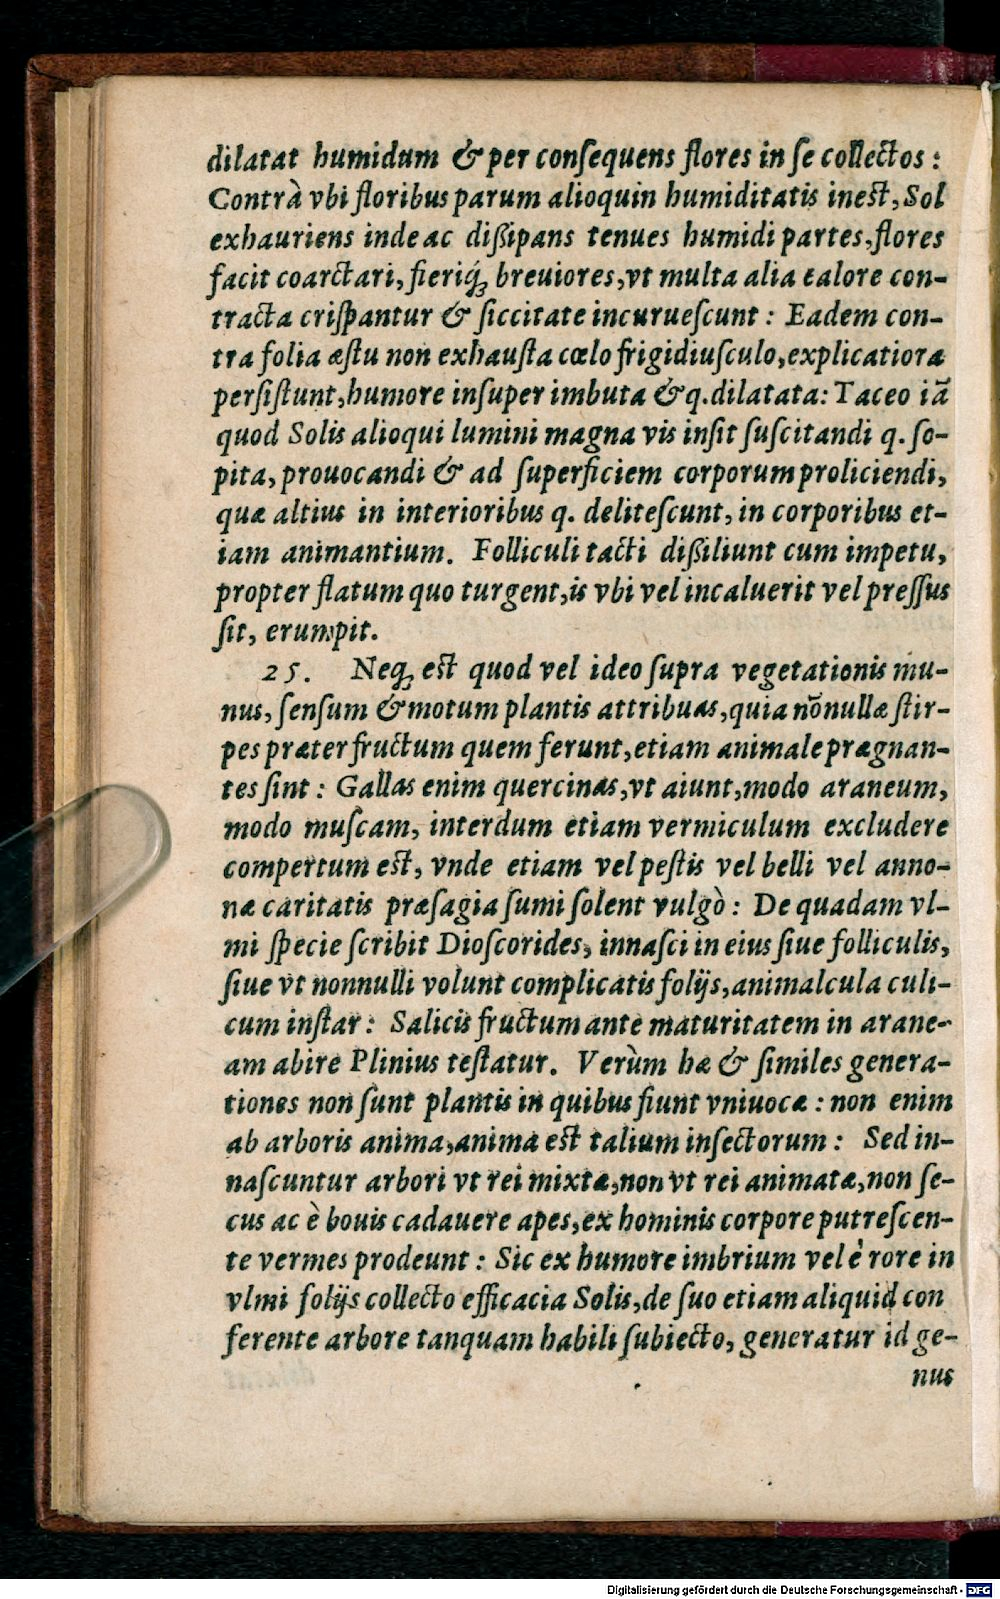 dilatat humidum & per conſequens flores in ſe collectos :
Contrà vbi floribus parum alioquin humiditatis ineſt, Sol
exhauriens inde ac dißipans tenues humidi partes, flores
facit coarctari, fieriq́ꝫ breuiores, vt multa alia calore con-
tracta criſpantur & ſiccitate incurueſcunt : Eadem con-
tra folia æſtu non exhauſta cœlo frigidiuſculo, explicatiora
perſiſtunt, humore inſuper imbuta & q. dilatata: Taceo iã
quod Solis alioqui lumini magna vis inſit ſuſcitandi q. ſo-
pita, prouocandi & ad ſuperficiem corporum proliciendi,
quæ altius in interioribus q. deliteſcunt, in corporibus et-
iam animantium. Folliculi tacti dißiliunt cum impetu,
propter flatum quo turgent, is vbi vel incaluerit vel preſſus
ſit, erumpit.
25. Neqꝫ eſt quod vel ideo ſupra vegetationis mu-
nus, ſenſum & motum plantis attribuas, quia nõnullæ ſtir-
pes præter fructum quem ferunt, etiam animale prægnan-
tes ſint : Gallas enim quercinas, vt aiunt, modo araneum,
modo muſcam, interdum etiam vermiculum excludere
compertum eſt, vnde etiam vel peſtis vel belli vel anno-
næ caritatis præſagia ſumi ſolent vulgò : De quadam vl-
mi ſpecie ſcribit Dioſcorides, innaſci in eius ſiue folliculis,
ſiue vt nonnulli volunt complicatis folijs, animalcula culi-
cum inſtar : Salicis fructum ante maturitatem in arane-
am abire Plinius teſtatur. Verùm hæ & ſimiles genera-
tiones non ſunt plantis in quibus fiunt vniuocæ : non enim
ab arboris anima, anima eſt talium inſectorum : Sed in-
naſcuntur arbori vt rei mixtæ, non vt rei animatæ, non ſe-
cus ac è bouis cadauere apes, ex hominis corpore putreſcen-
te vermes prodeunt : Sic ex humore imbrium vel è rore in
vlmi folijs collecto efficacia Solis, de ſuo etiam aliquid con
ferente arbore tanquam habili ſubiecto, generatur id ge-
nus
Digitalisierung gefördert durch die Deutsche Forschungsgemeinschaft - DFG